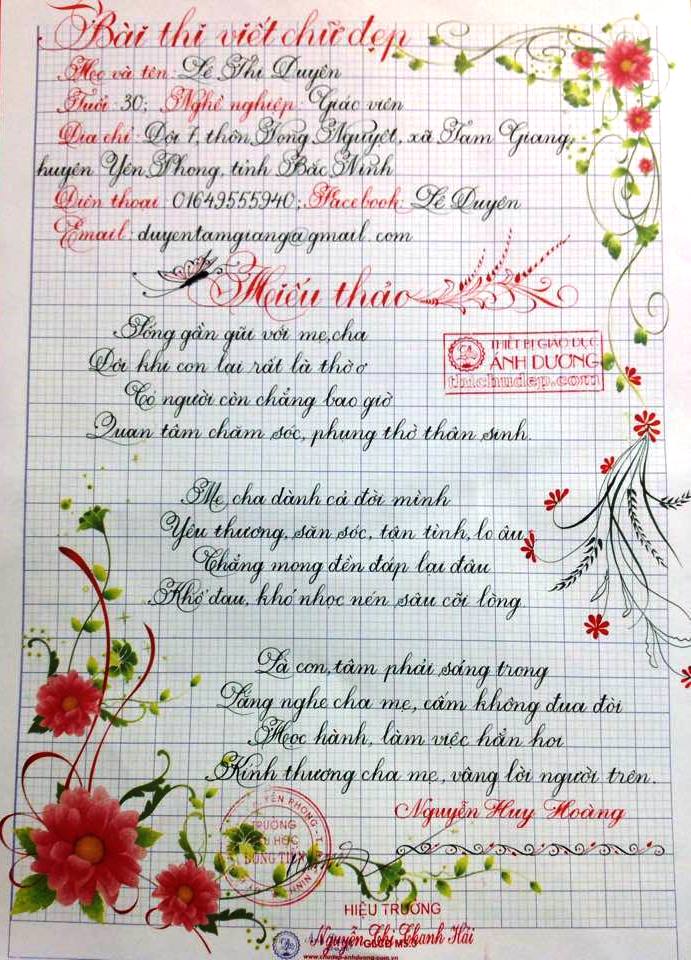 Bài thi viết chữ đẹp
Họ và tên: Lê Thị Duyên
Tuổi: 30; Nghề nghiệp: Giáo viên
Địa chỉ: Đội 7, thôn Vọng Nguyệt, xã Tam Giang,
huyện Yên Phong, tỉnh Bắc Ninh
Điện thoại: 01649555940; Facebook: Lê Duyên
Email: duyentamgiang@gmail.com
Hiếu thảo
THIẾT BỊ GIÁO DỤC
ÁNH DƯƠNG
thichudep.com
Sống gần gũi với mẹ, cha
Đôi khi con lại rất là thờ ơ
Có người còn chẳng bao giờ
Quan tâm chăm sóc, phụng thờ thân sinh.
Mẹ, cha dành cả đời mình
Yêu thương, săn sóc, tận tình, lo âu
Chẳng mong đền đáp lại đâu
Khổ đau, khó nhọc nén sâu cõi lòng.
Là con, tâm phải sáng trong
Lắng nghe cha mẹ, cấm không đua đòi
Học hành, làm việc hẳn hoi
Kính thương cha mẹ, vâng lời người trên.
Nguyễn Huy Hoàng
YÊN PHONG
TRƯỜNG
TIỂU HỌC
ĐÔNG TIẾN
HIỆU TRƯỞNG
Nguyễn Thị Thanh Hải
www.chudep-anhduong.com.vn